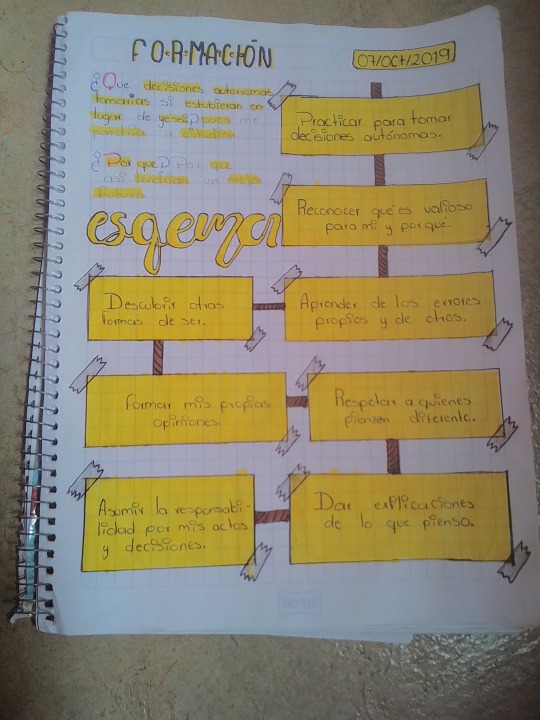 FORMACIÓN
07/Oct/2019
¿Que decisiones autonomas
tomarias si estubieran en
lugar de yessi? pues me
pondria a estudiar
¿Por que? Por que
asi tendrian un mejo
futuro
esqema
Practicar para tomar
decisiones autónomas.
Reconocer qué es valioso
para mi y por qué.
Aprender de los errores
propios y de otros.
Descubrir otras
formas de ser.
Formar mis propias
opiniones.
Respetar a quienes
piensen diferente.
Dar explicaciones
de lo que pienso.
Asumir la responsabi-
lidad por mis actos
y decisiones.